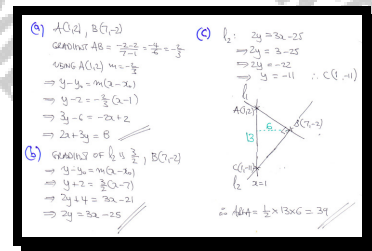 (a) A(1,2), B(7,-2)
GRADIENT AB = -2-2/7-1 = -4/6 = -2/3
USING A(1,2) m = -2/3
⇒ y-y₀ = m(x-x₀)
⇒ y-2 = -2/3(x-1)
⇒ 3y-6 = -2x+2
⇒ 2x+3y = 8
(b) GRADIENT OF l₂ IS 3/2, B(7,-2)
⇒ y-y₀ = m(x-x₀)
⇒ y+2 = 3/2(x-7)
⇒ 2y+4 = 3x-21
⇒ 2y = 3x-25
(c) l₂: 2y = 3x-25
⇒ 2y = 3-25
⇒ 2y = -22
⇒ y = -11 ∴ C(1,-11)
l₁
A(1,2)
6
B(7,-2)
13
C(1,-11)
l₂ x=1
∴ AREA = 1/2 × 13 × 6 = 39